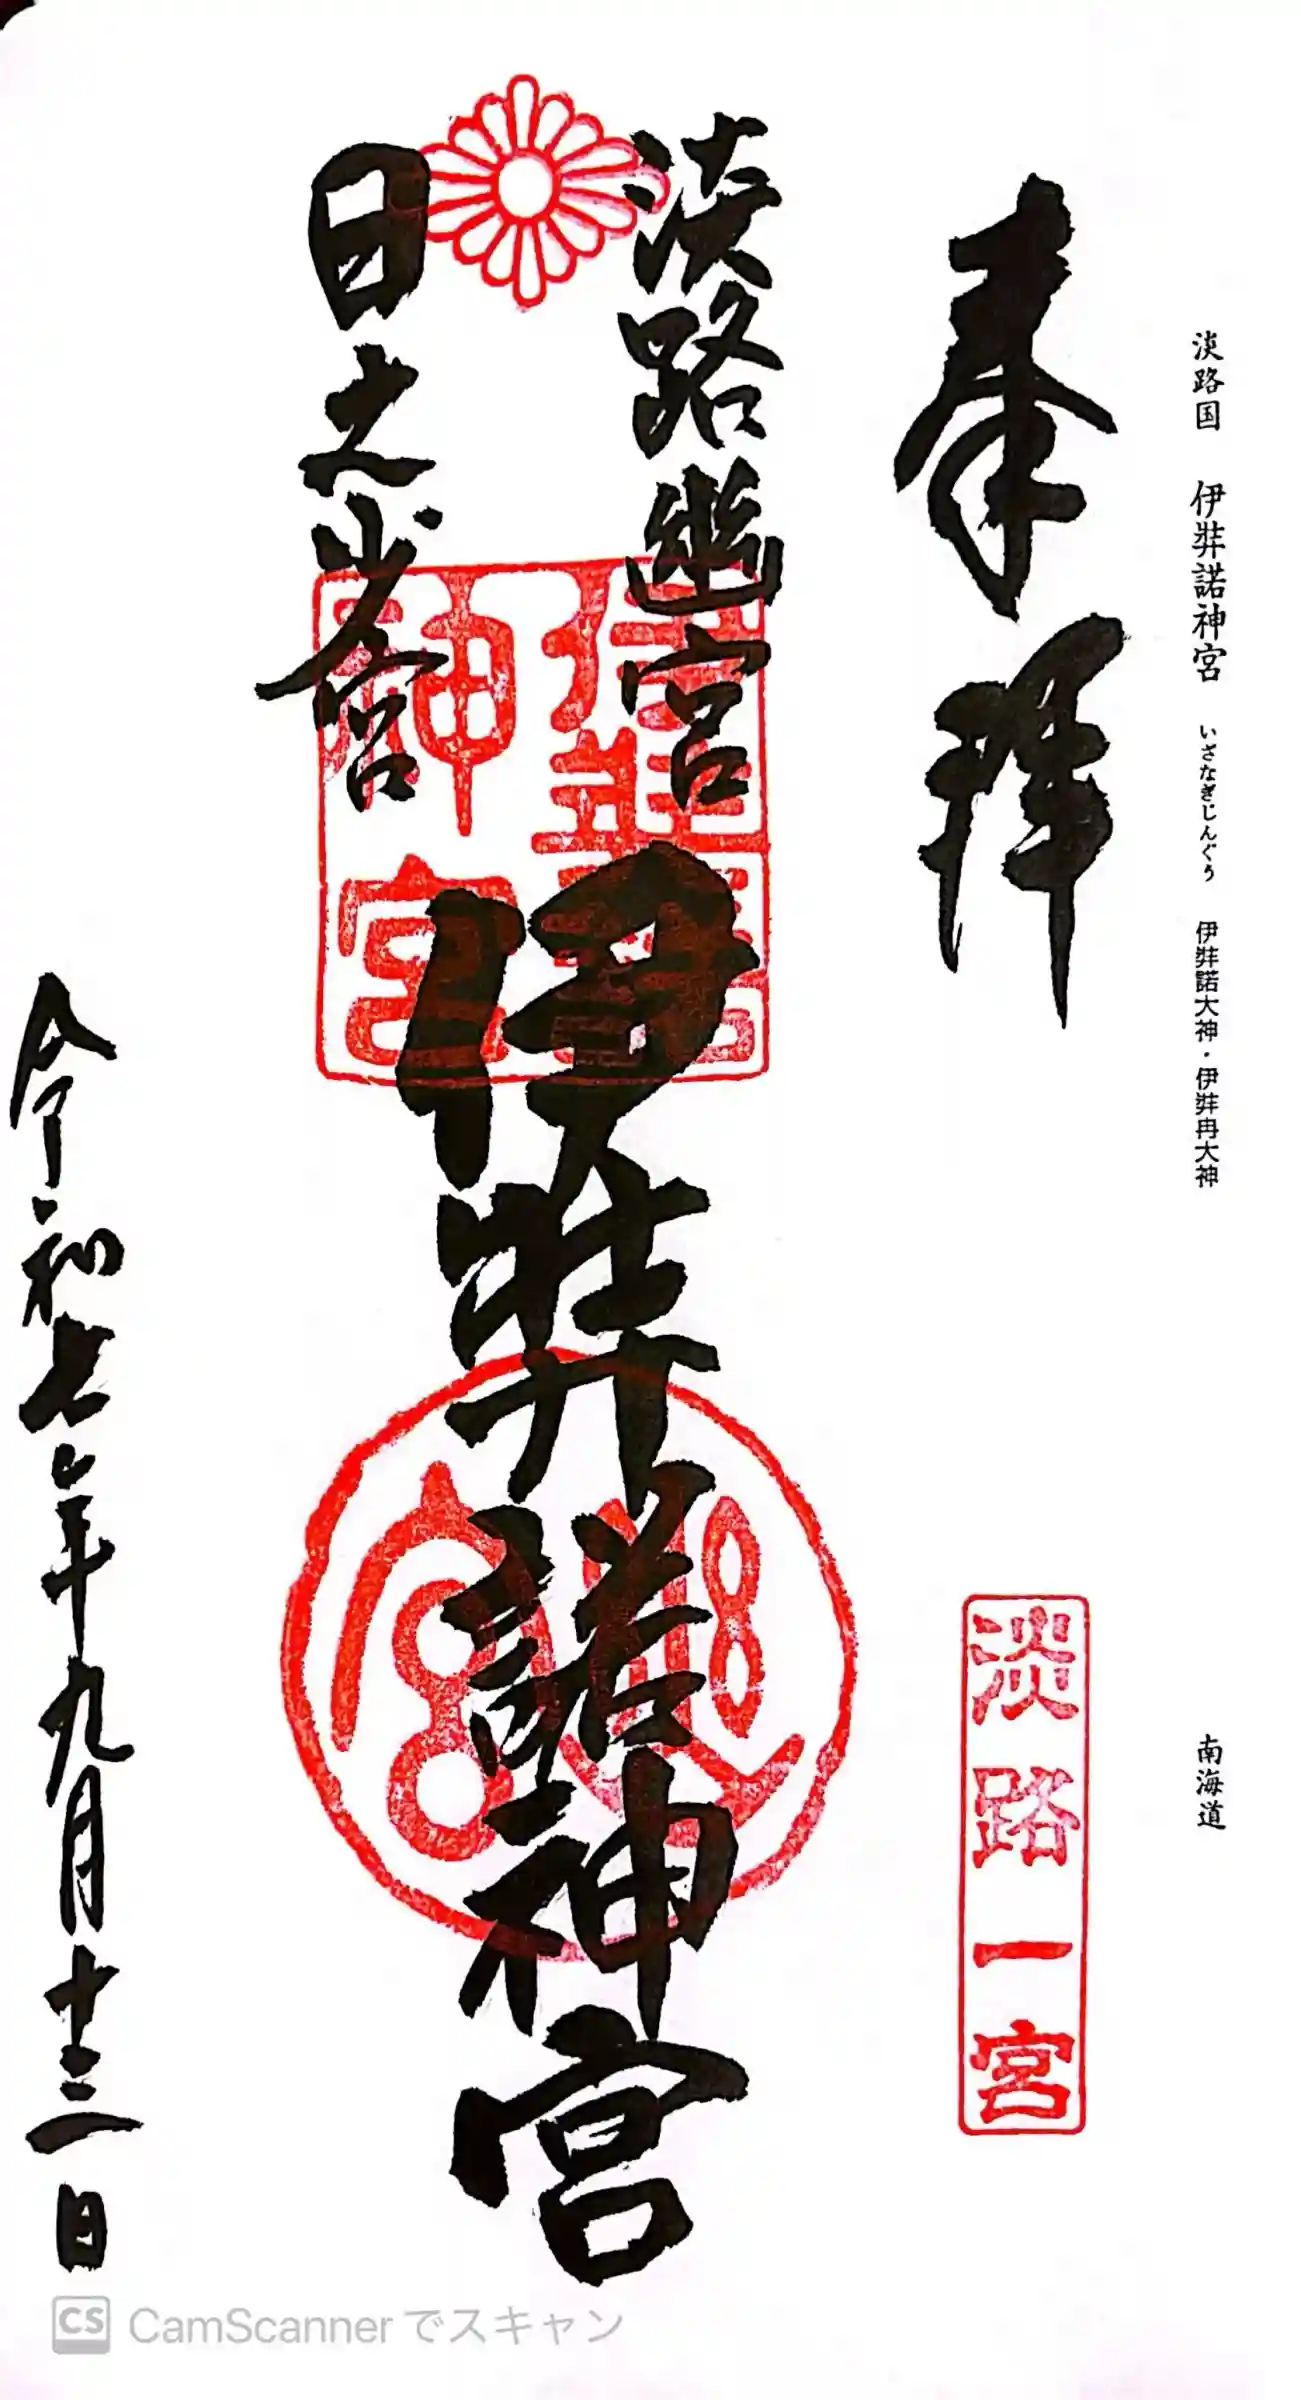 淡路国 伊弉諾神宮 いざなぎじんぐう 伊弉諾大神・伊弉冉大神
南海道
奉拝
淡路一宮
淡路幽宮
伊弉諾神宮
日之少宮
伊弉諾神宮
幽宮
令和七年九月十三日
CS CamScannerでスキャン